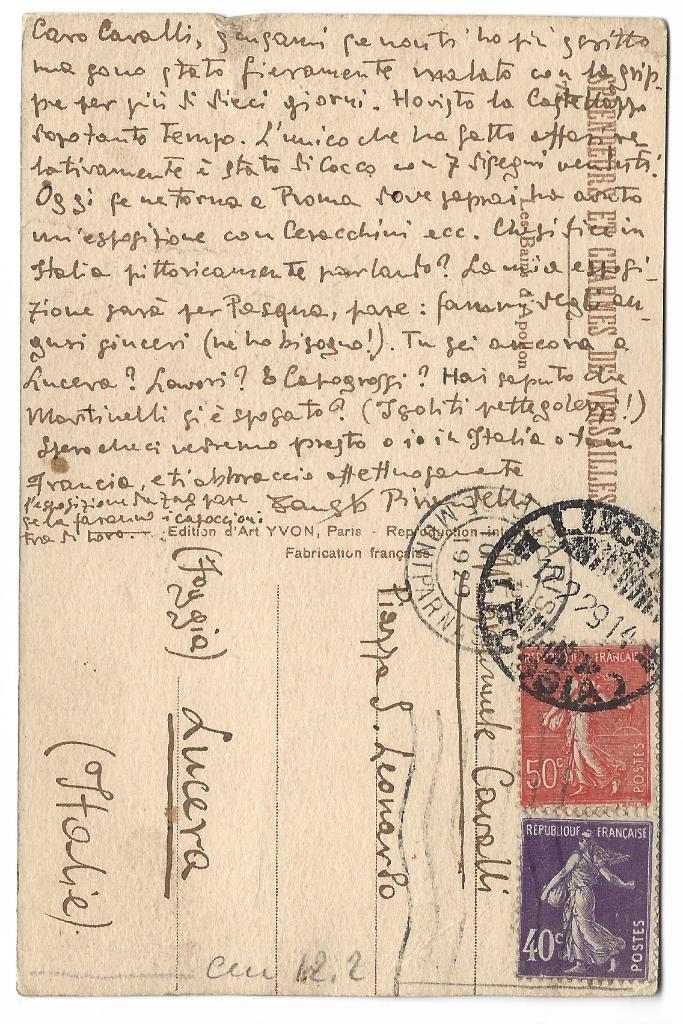 Caro Cavalli, scusami se non ti ho più scritto
ma sono stato fieramente malato con la grip-
pe per più di dieci giorni. Ho visto la Castellazzo
dopo tanto tempo. L'unico che ha fatto affari re-
lativamente è stato Di Cocco con 7 disegni venduti.
Oggi se ne torna a Roma dove saprai ha avuto
un'esposizione con Ceracchini ecc. Chi si fice in
Italia pittoricamente parlando? La mia esposi-
zione sarà per Pasqua, pare: fammi degli au-
guri sinceri (ne ho bisogno!). Tu sei ancora a
Lucera? Lavori? E Capogrossi? Hai saputo che
Martinelli si è sposato? (I soliti pettegolezzi!)
Spero che ci vedremo presto o io in Italia o tu in
Francia, e ti abbraccio affettuosamente
Fausto Pirandello
l'esposizione
se la faranno i capoccioni
tra di loro
SPLENDEURS ET CHARMES DE VERSAILLES
Les Bains d'Apollon
Edition d'Art YVON, Paris - Reproduction
Fabrication française
PARIS
MONTPARNASSE
1929
LUCERA
FOGGIA
29 14
Cavalli
Piazza S. Leonardo
Lucera
(Foggia)
(Italie)
REPUBLIQUE FRANÇAISE
50c
POSTES
REPUBLIQUE FRANÇAISE
40c
POSTES
12.2